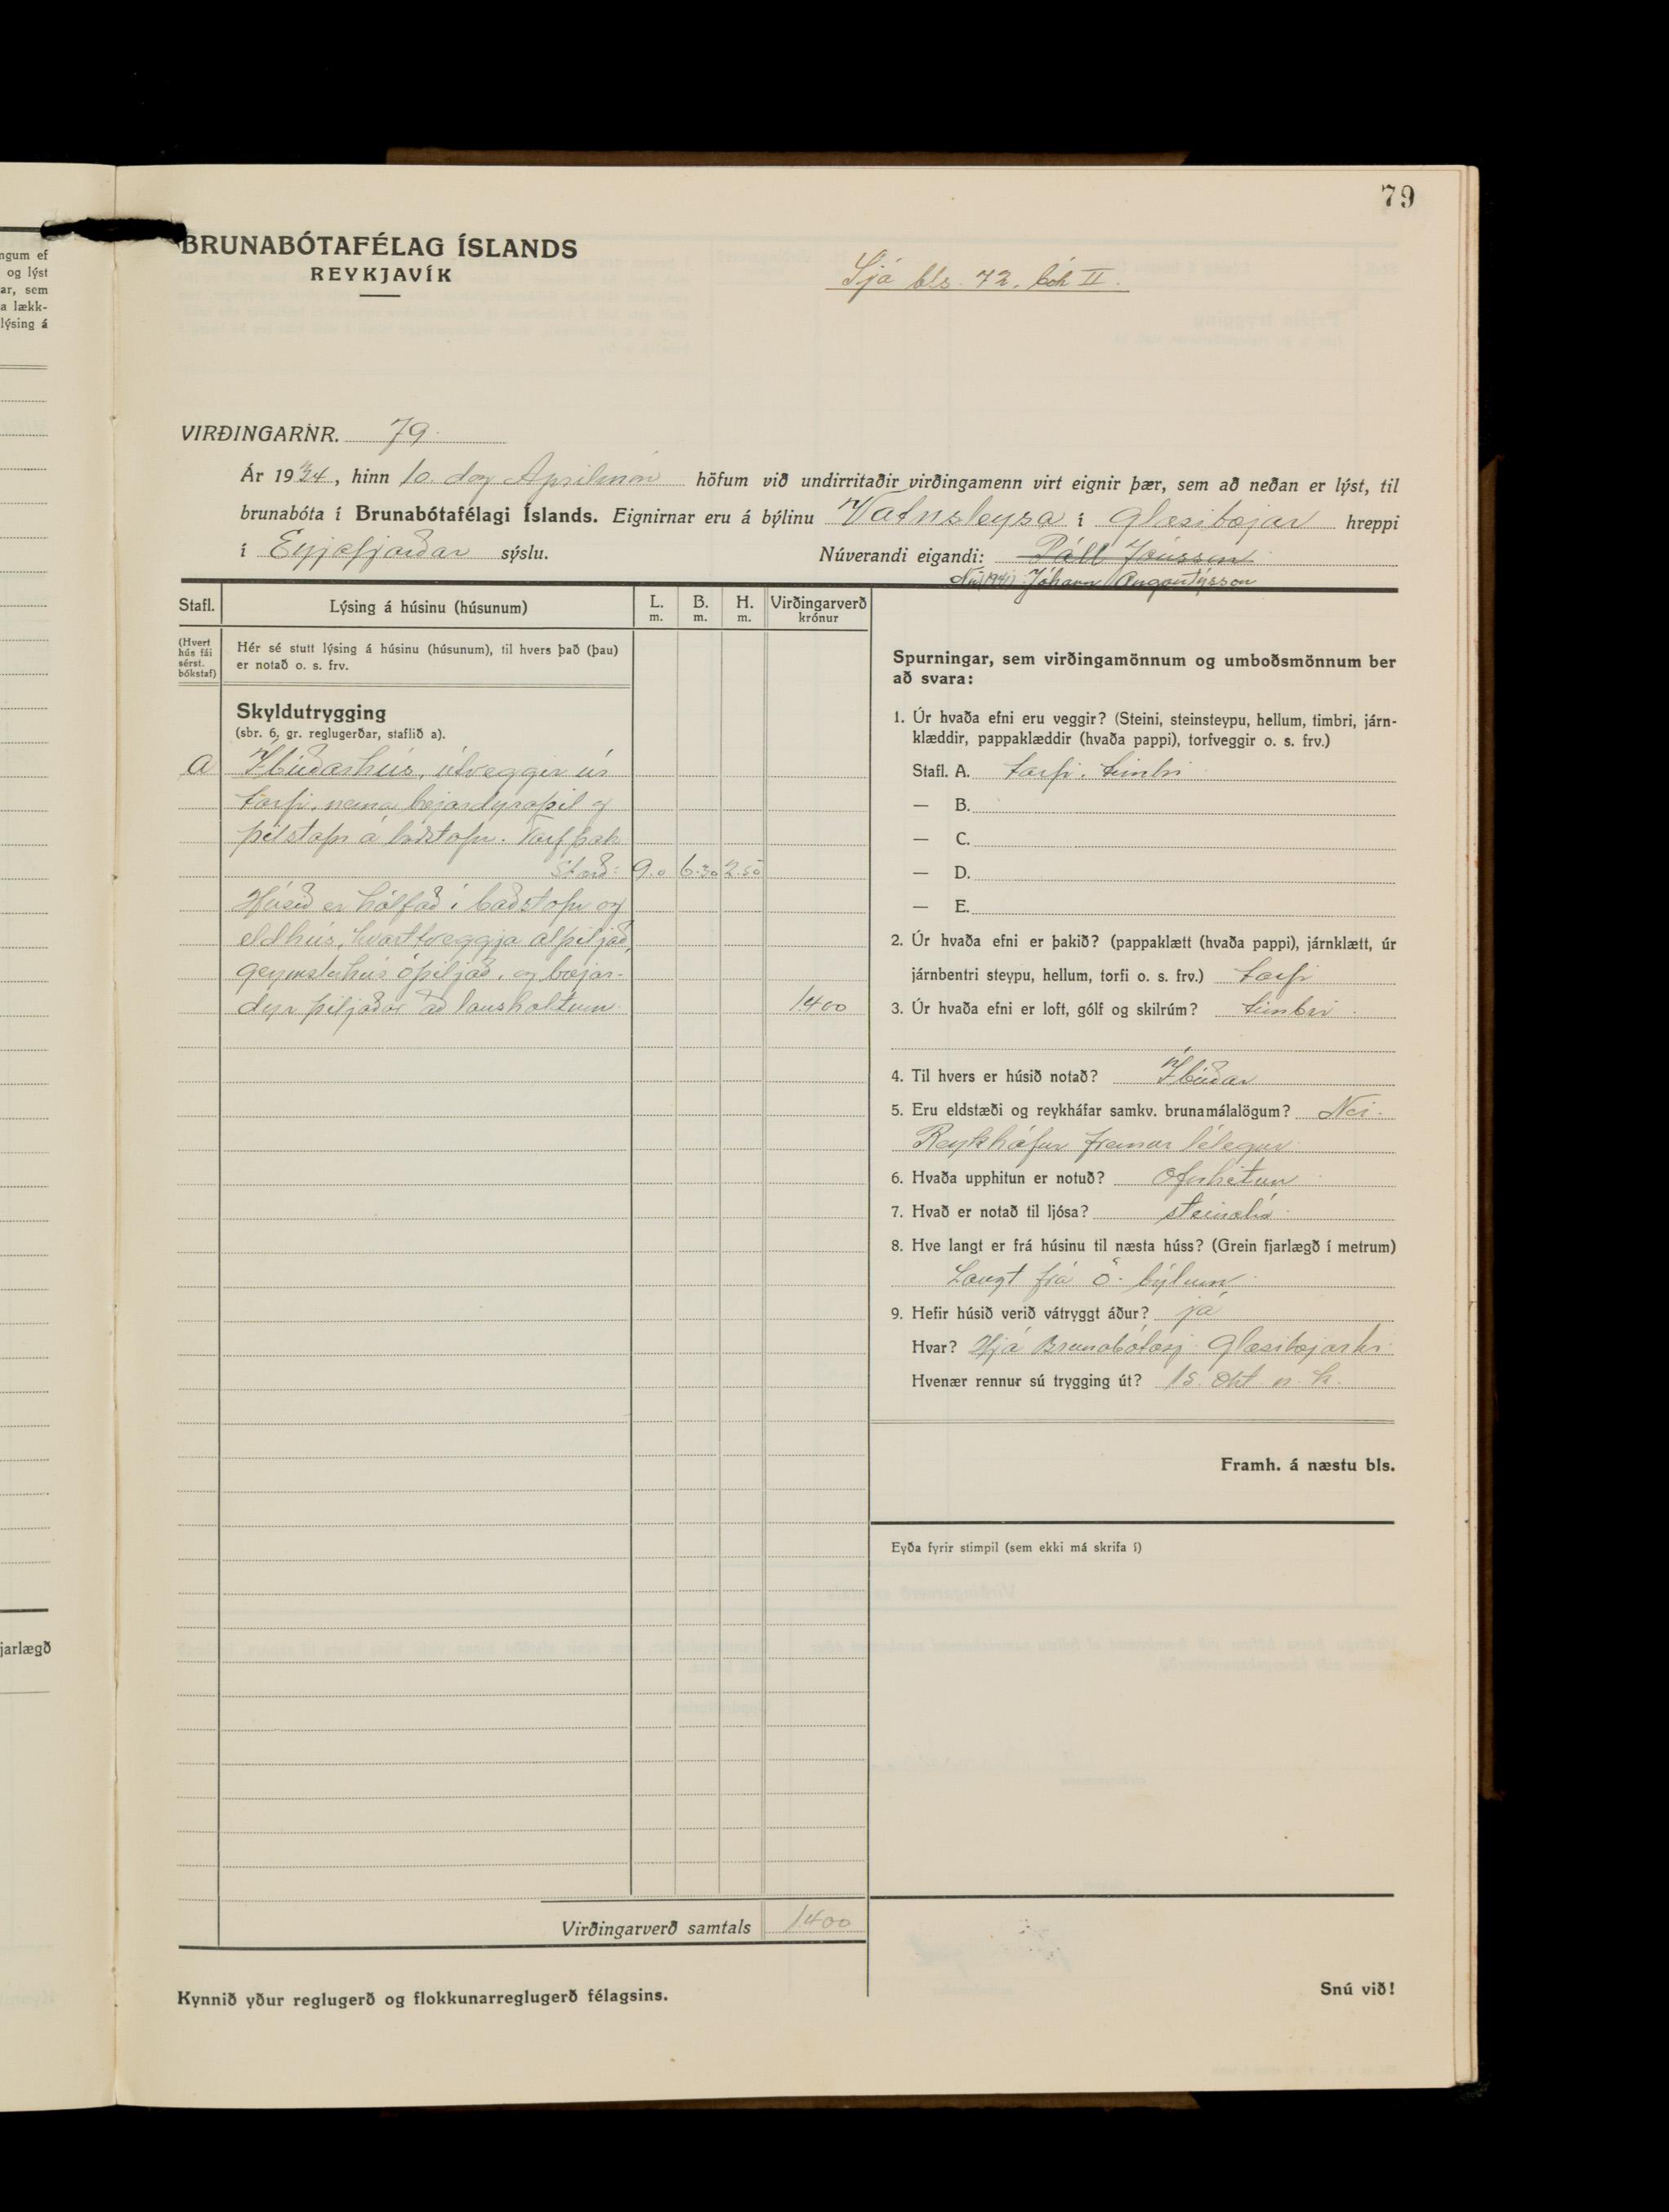 79
BRUNABÓTAFÉLAG ÍSLANDS
REYKJAVÍK
Sjá bls. 72. bók II.
VIRÐINGARNR. 79.
Ár 1934, hinn 10. dag Aprílmán höfum við undirritaðir virðingamenn virt eignir þær, sem að neðan er lýst, til
brunabóta í Brunabótafélagi Íslands. Eignirnar eru á býlinu Vatnsleysa í Glæsibæjar hreppi
í Eyjafjarðar sýslu. Núverandi eigandi: Páll Jónsson
Nú (1941) Jóhann Angantýsson
Stafl. Lýsing á húsinu (húsunum) L. m. B. m. H. m. Virðingarverð krónur
(Hvert hús fái sérst. bókstaf)
Hér sé stutt lýsing á húsinu (húsunum), til hvers það (þau)
er notað o. s. frv.
Skyldutrygging
(sbr. 6. gr. reglugerðar, staflið a).
a Íbúðarhús, útveggir úr
torfi, nema bæjardyraþil og
þilstafn á baðstofu. Torfþak
Stærð: 9.0 6.30 2.50
Húsið er hólfað í baðstofu og
eldhús, hvorttveggja alþiljað,
geymsluhús óþiljað, og bæjar-
dyr þiljaðar að lausholtum 1400
Virðingarverð samtals 1400
Kynnið yður reglugerð og flokkunarreglugerð félagsins.
Spurningar, sem virðingamönnum og umboðsmönnum ber
að svara:
1. Úr hvaða efni eru veggir? (Steini, steinsteypu, hellum, timbri, járn-
klæddir, pappaklæddir (hvaða pappi), torfveggir o. s. frv.)
Stafl. A. torfi. timbri
— B.
— C.
— D.
— E.
2. Úr hvaða efni er þakið? (pappaklætt (hvaða pappi), járnklætt, úr
járnbentri steypu, hellum, torfi o. s. frv.) torfi
3. Úr hvaða efni er loft, gólf og skilrúm? timbri
4. Til hvers er húsið notað? Íbúðar
5. Eru eldstæði og reykháfar samkv. brunamálalögum? Nei.
Reykháfur fremur lélegur
6. Hvaða upphitun er notuð? Ofnhitun
7. Hvað er notað til ljósa? steinolía
8. Hve langt er frá húsinu til næsta húss? (Grein fjarlægð í metrum)
Langt frá ö. býlum
9. Hefir húsið verið vátryggt áður? já
Hvar? Hjá Brunabótasj. Glæsibæjarhr.
Hvenær rennur sú trygging út? 15. okt. n. k.
Framh. á næstu bls.
Eyða fyrir stimpil (sem ekki má skrifa í)
Snú við!
ngum ef
og lýst
ar, sem
a lækk-
lýsing á
jarlægð